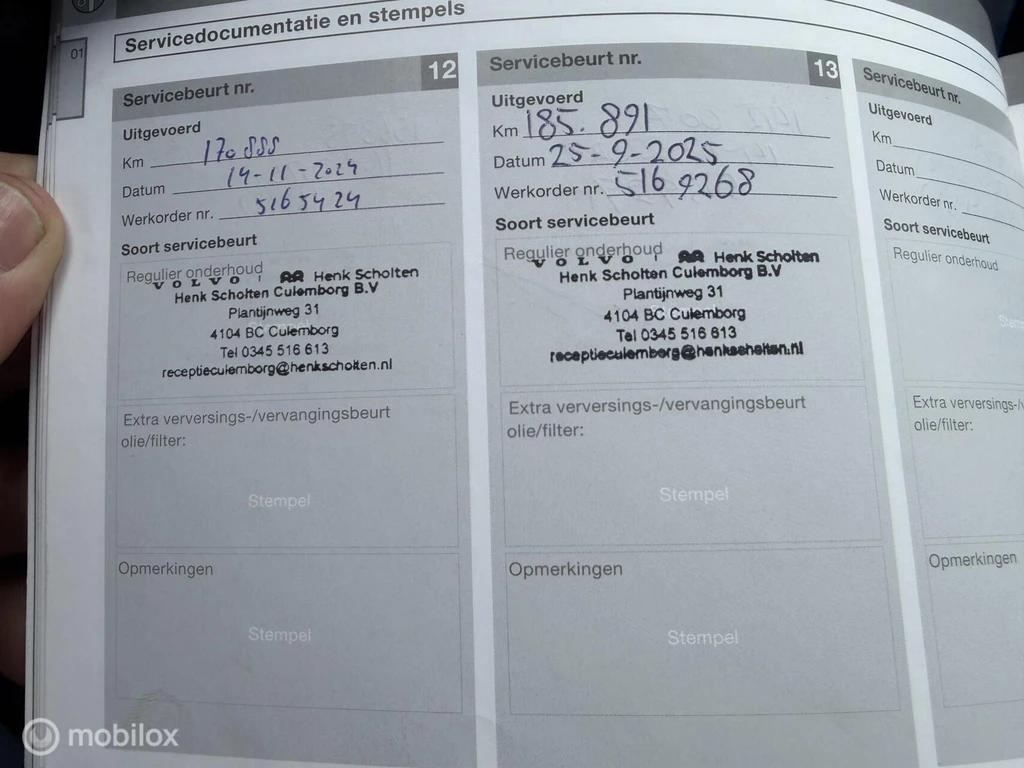 01
Servicedocumentatie en stempels
Servicebeurt nr. 12
Uitgevoerd
Km 170 888
Datum 14-11-2024
Werkorder nr. 5165424
Soort servicebeurt
Regulier onderhoud
VOLVO Henk Scholten
Henk Scholten Culemborg B.V
Plantijnweg 31
4104 BC Culemborg
Tel 0345 516 613
receptieculemborg@henkscholten.nl
Extra verversings-/vervangingsbeurt
olie/filter:
Stempel
Opmerkingen
Stempel
Servicebeurt nr. 13
Uitgevoerd
Km 185.891
Datum 25-9-2025
Werkorder nr. 5169268
Soort servicebeurt
Regulier onderhoud
VOLVO Henk Scholten
Henk Scholten Culemborg B.V
Plantijnweg 31
4104 BC Culemborg
Tel 0345 516 613
receptieculemborg@henkscholten.nl
Extra verversings-/vervangingsbeurt
olie/filter:
Stempel
Opmerkingen
Stempel
Servicebeurt nr.
Uitgevoerd
Km
Datum
Werkorder nr.
Soort servicebeurt
Regulier onderhoud
Extra verversings-/
olie/filter:
Opmerkingen
mobilox